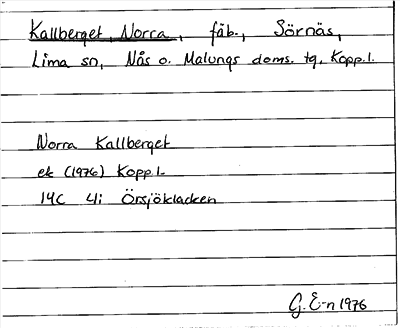 Kallberget, Norra, fäb., Sörnäs,
Lima sn, Nås o. Malungs doms. tg, Kopp.l.
Norra Kallberget
ek (1976) Kopp.l.
14C 4i Örsjökladden
G. E-n 1976